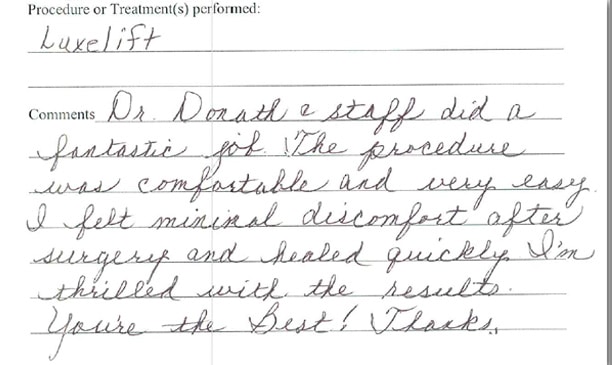 Procedure or Treatment(s) performed:
Luxelift
Comments Dr. Donath & staff did a
fantastic job. The procedure
was comfortable and very easy.
I felt minimal discomfort after
surgery and healed quickly. I'm
thrilled with the results.
You're the Best! Thanks.